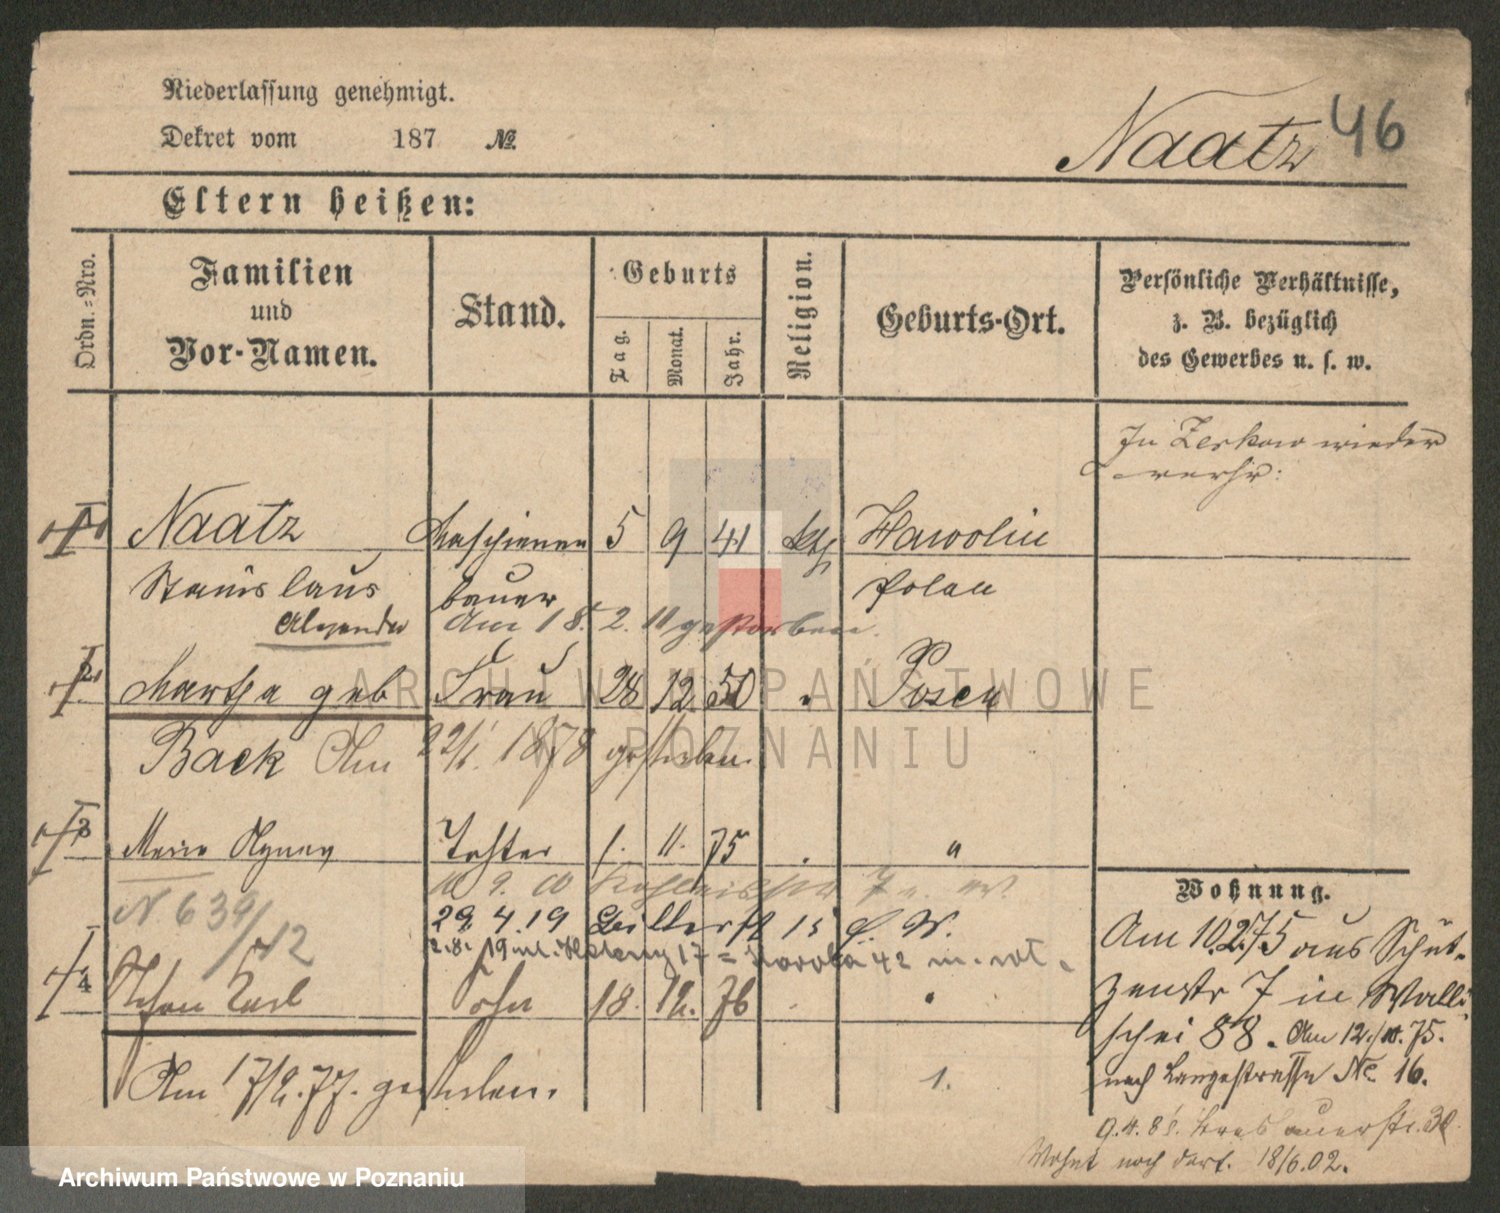 Niederlassung genehmigt.
Dekret vom 187 №
Naatz 46
Eltern heißen:
Ordn.=Nro.
Familien und Vor-Namen.
Stand.
Geburts
Tag.
Monat.
Jahr.
Religion.
Geburts-Ort.
Persönliche Verhältnisse,
z. B. bezüglich
des Gewerbes u. s. w.
In Zerkow wieder
verh:
1 Naatz Maschienen 5 9 41 kth Hawolin
Stanislaus bauer Polen
Alexander Am 18. 2. 11 gestorben.
2 Martha geb Frau 28 12 50 " Posen
Back Am 22/1. 1878 gestorben.
3 Marie Agnes Tochter 1. 11. 75 . "
10. 9. 00
N. 639/12
29. 4. 19
2.8.19
Wohnung.
Am 10.2.75 aus Schüt-
zenstr 7 in Walli
schei 88. Am 12./10.75.
nach Langestrasse № 16.
4 Johan Carl Sohn 18. 12. 76
Am 17/2.77. gestorben. 1.
9.4.85. Breslauerstr. 30
Wohnt noch dort. 18/6.02.
ARCHIWUM PAŃSTWOWE
W POZNANIU
Archiwum Państwowe w Poznaniu